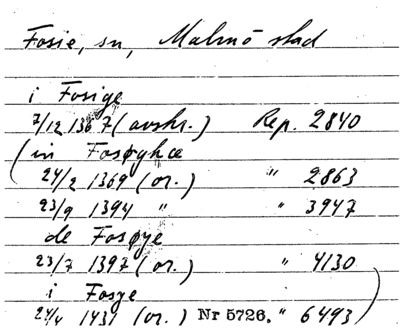 Fosie, sn, Malmö stad
i Fosige
7/12 1367 (avskr.) Rep. 2840
(in Fosøghæ
24/2 1369 (or.) " 2863
23/9 1394 " " 3947
de Fosøye
23/7 1397 (or.) " 4130
i Fosye
24/4 1431 (or.) Nr 5726. " 6493)